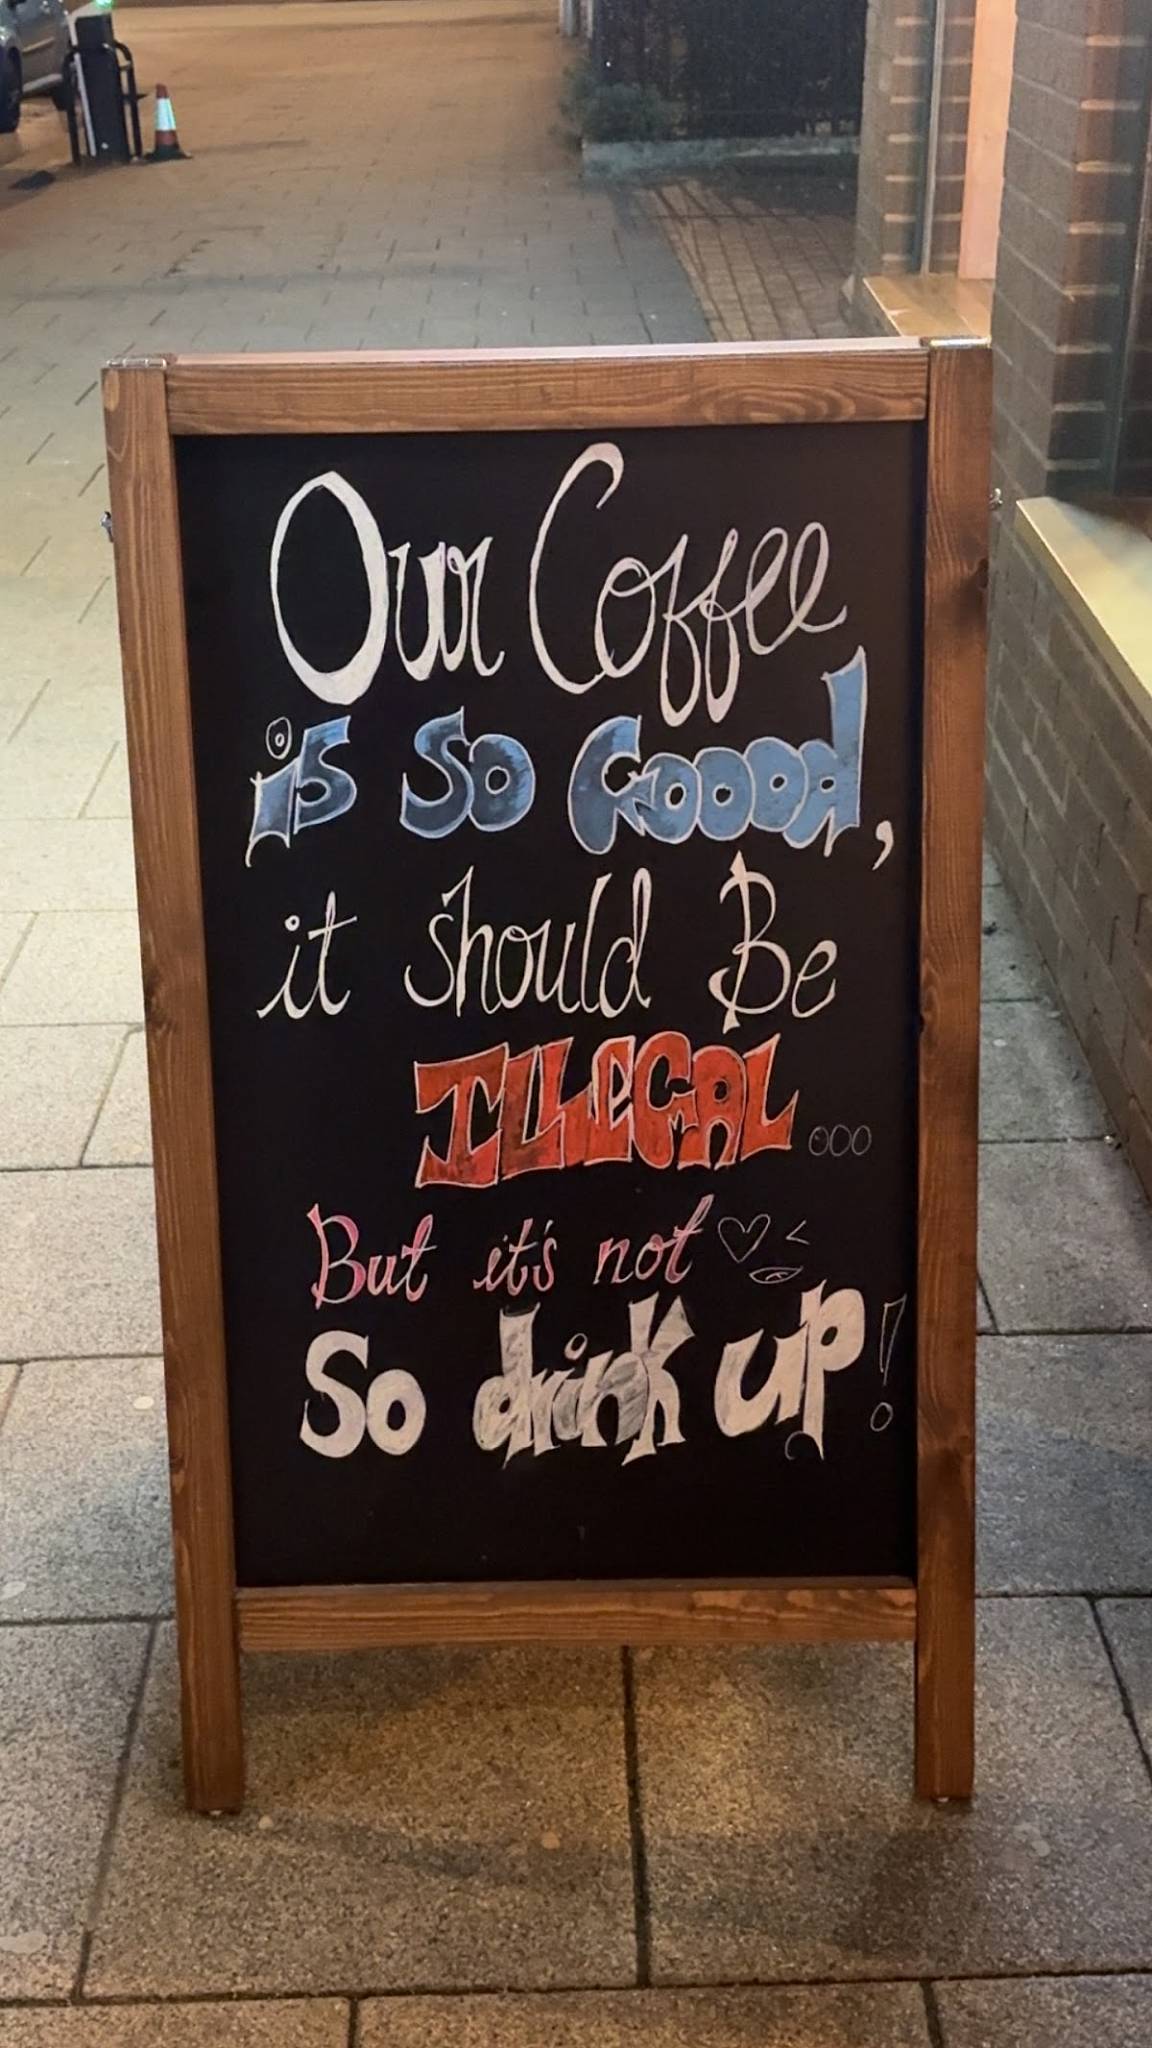 Our Coffee
is so Goood,
it should Be
ILLEGAL...
But it's not
So drink up!